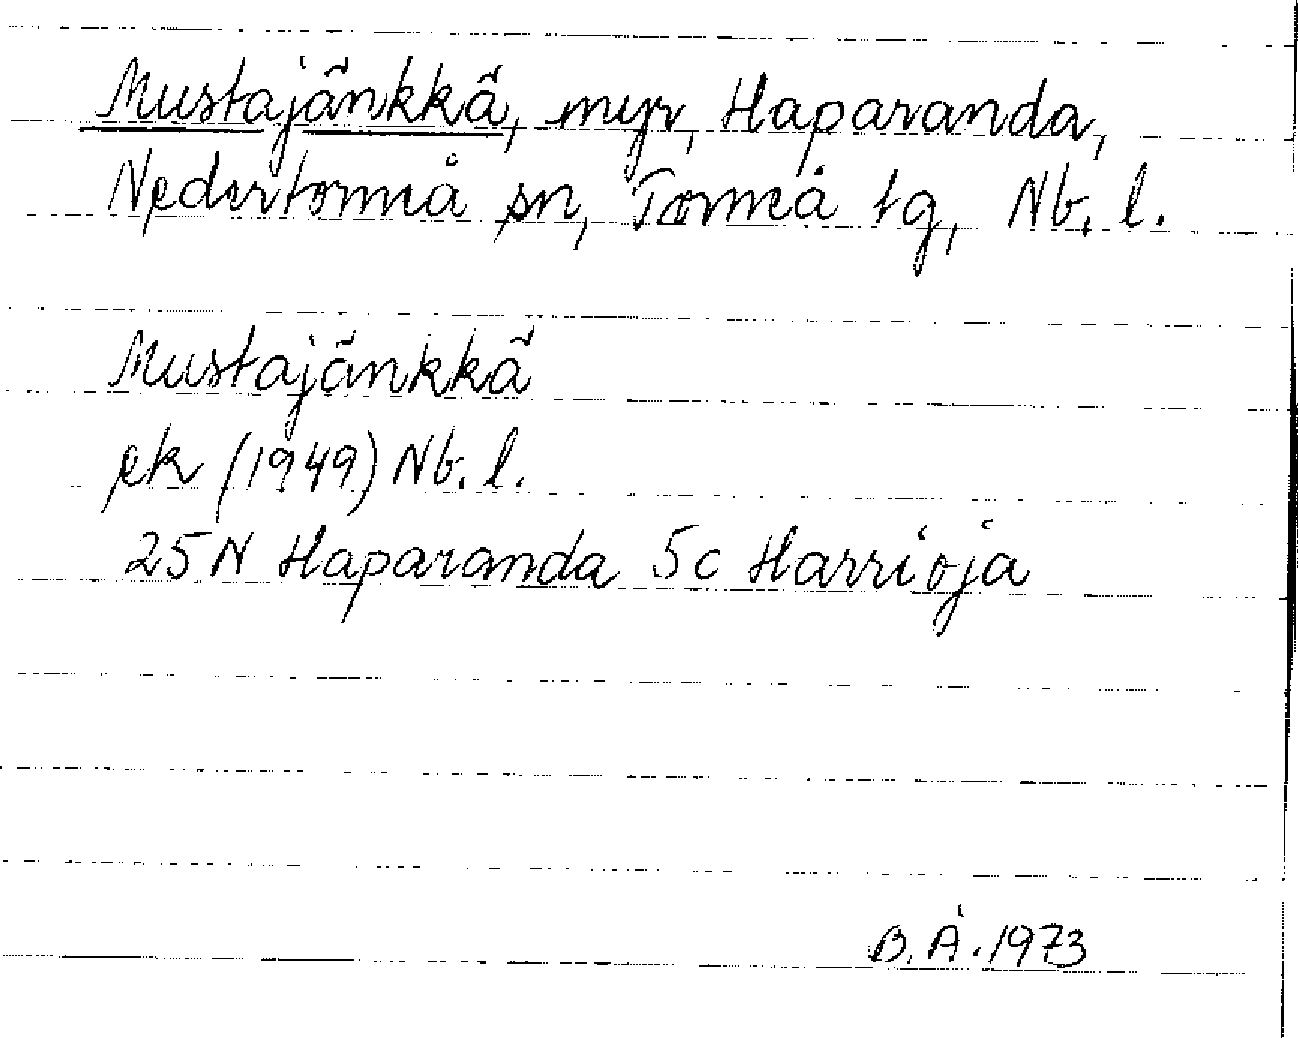 Mustajänkkä, myr, Haparanda,
Nedertorneå sn, Torneå tg, Nb. l.
Mustajänkkä
ek (1949) Nb. l.
25 N Haparanda 5c Harrioja
B. Å. 1973